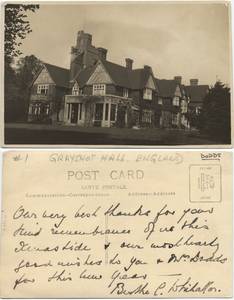 DODDS
#1 GRAYSHOT HALL. ENGLAND
POST CARD
CARTE POSTALE
COMMUNICATION—CORRESPONDANCE ADDRESS—ADRESSE
Our very best thanks for your
kind remembrance of us this
Xmastide & our most hearty
good wishes to you & Mrs Dodds
for this New Year
Bertha C. Whitaker.